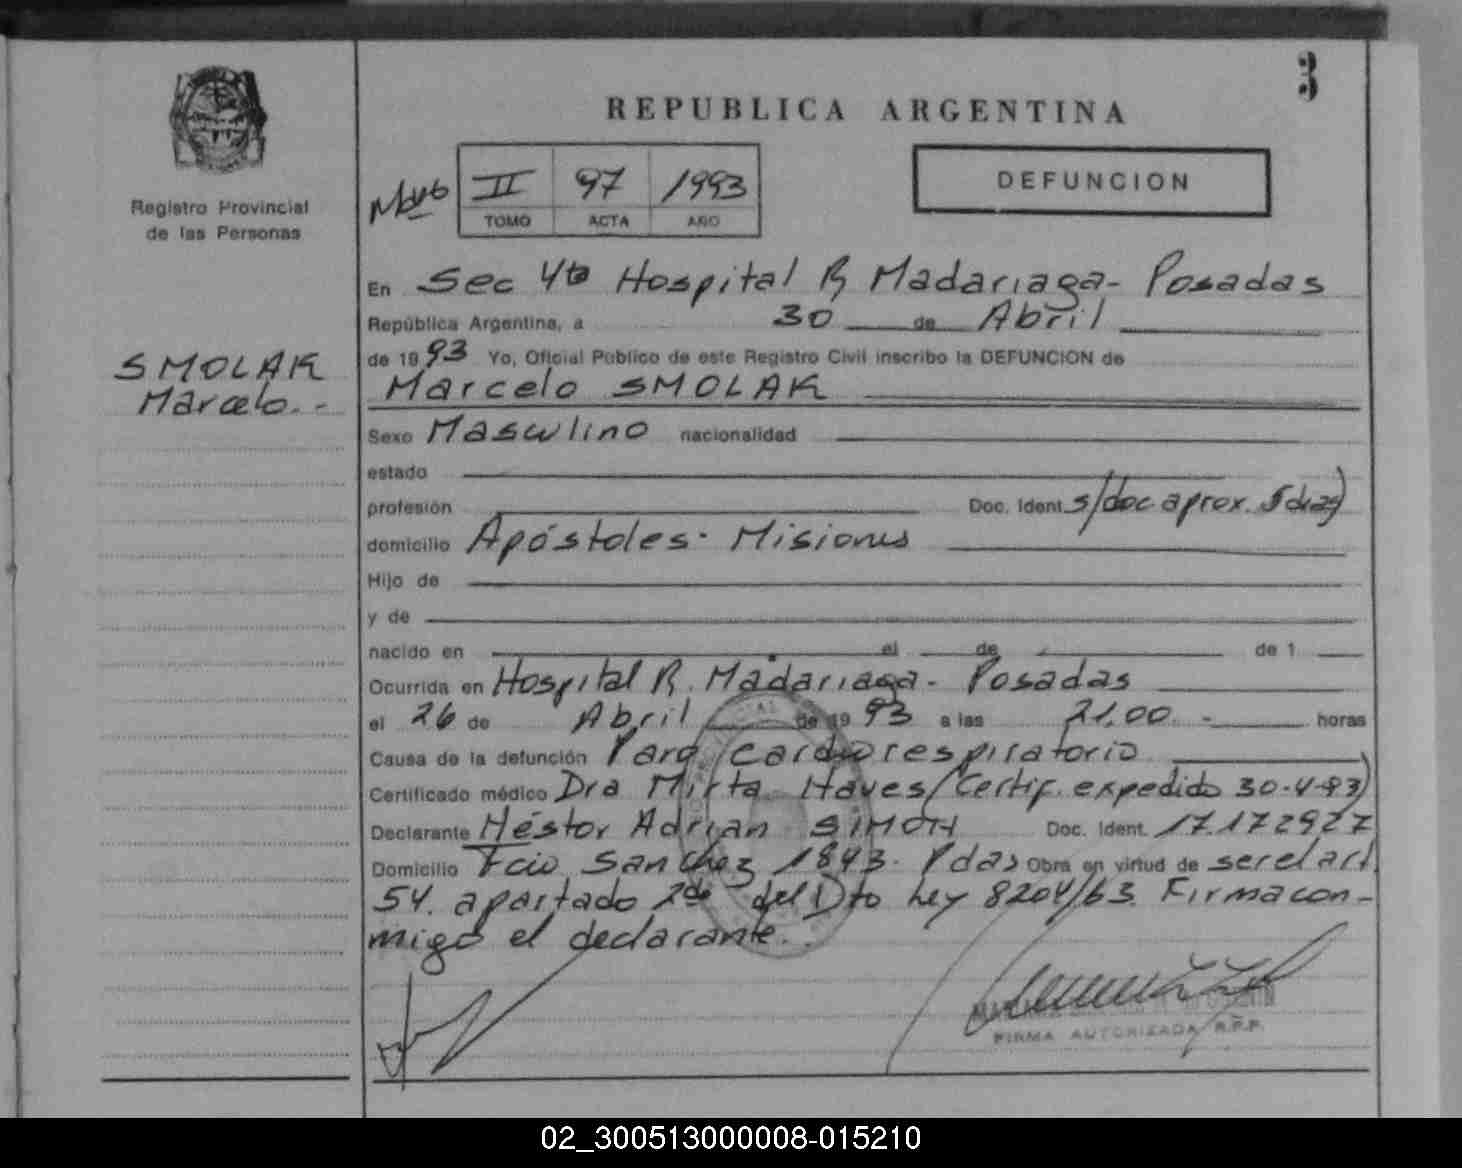 3
REPUBLICA ARGENTINA
II 97 1993
TOMO ACTA AÑO
DEFUNCION
Registro Provincial
de las Personas
SMOLAK
Marcelo.-
En Sec 4ta Hospital R Madariaga- Posadas
República Argentina, a 30 de Abril
de 1993 Yo, Oficial Público de este Registro Civil inscribo la DEFUNCION de
Marcelo SMOLAK
Sexo Masculino nacionalidad
estado
profesión Doc. Ident. s/doc aprox. 5 dias)
domicilio Apóstoles- Misiones
Hijo de
y de
nacido en el de de 1
Ocurrida en Hospital R. Madariaga- Posadas
el 26 de Abril de 1993 a las 21.00.- horas
Causa de la defunción Paro cardiorespiratorio
Certificado médico Dra Mirta Haves (Certif. expedido 30-4-93)
Declarante Héstor Adrian SIMON Doc. Ident. 17.172927
Domicilio Fcio Sanchez 1843- Pdas Obra en virtud de ser el art.
54. apartado 2do del Dto Ley 8204/63. Firma con-
migo el declarante.
FIRMA AUTORIZADA R.P.P.
02_300513000008-015210